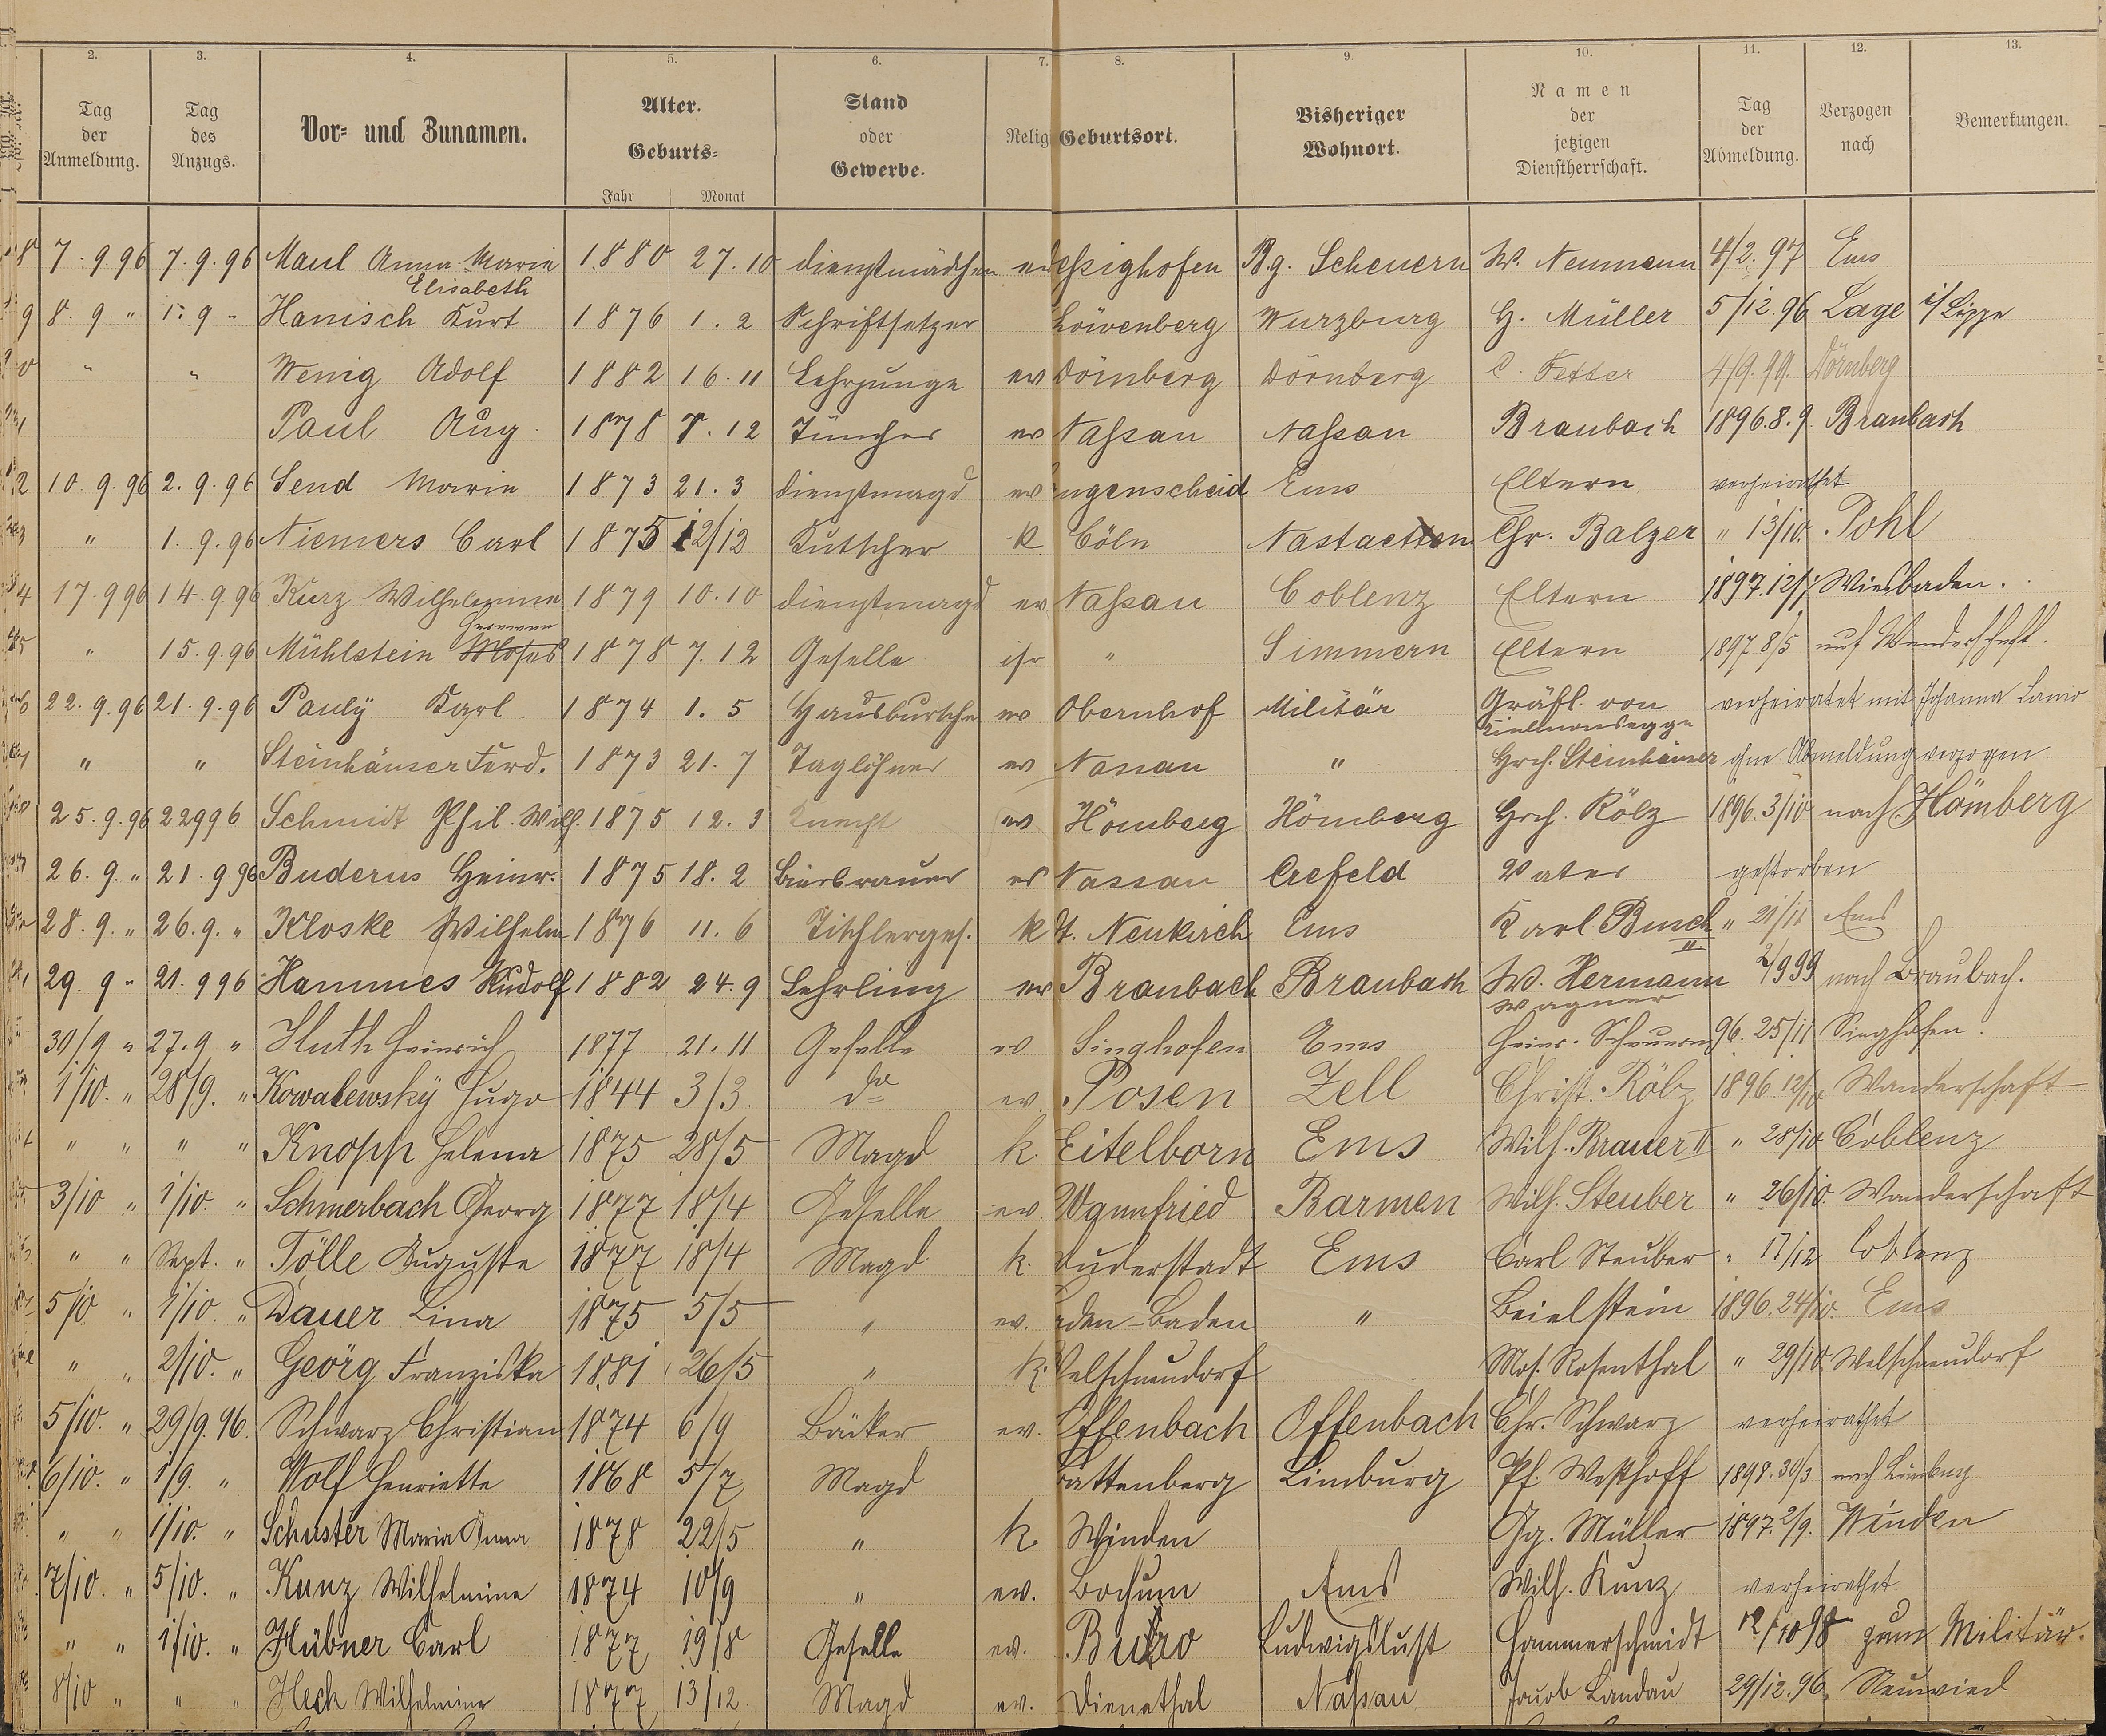 2. 3. 4. 5. 6. 7. 8. 9. 10. 11. 12. 13.
Tag der Anmeldung. Tag des Anzugs. Vor- und Zunamen. Alter. Geburts- Jahr Monat Stand oder Gewerbe. Relig Geburtsort. Bisheriger Wohnort. Namen der jetzigen Dienstherrschaft. Tag der Abmeldung. Verzogen nach Bemerkungen.
8 7. 9. 96 7. 9. 96 Maul Anna Marie Elisabeth 1880 27. 10 Dienstmädchen eßighofen Bg. Scheuern W. Neumann 4/2. 97 Ems
9 8. 9 " 1. 9 - Hanisch Kurt 1876 1. 2 Schriftsetzer Löwenberg Wurzburg H. Müller 5/12. 96 Lage i/Lippe
0 " " Wenig Adolf 1882 16. 11 Lehrjunge ev Dörnberg Dörnberg C. Fetter 4/9. 99. Dörnberg
1 Paul Aug. 1878 7. 12 Tüncher ev Naßau Naßau Braubach 1896. 8. 9. Braubach
2 10. 9. 96 2. 9. 96 Send Marie 1873 21. 3 Dienstmagd ev ugenscheid Ems Eltern verheirathet
3 " 1. 9. 96 Niemers Carl 1875 12/12 Kutscher k Cöln Nastaetten Chr. Balzer " 13/10. Pohl
4 17. 9 96 14. 9. 96 Kurz Wilhelmine 1879 10. 10 Dienstmagd ev Naßau Coblenz Eltern 1897. 12/1. Wiesbaden.
5 " 15. 9. 96 Mühlstein Moses Hermann 1878 7. 12 Geselle isr " Simmern Eltern 1897 8/5 auf Wanderschaft.
6 22. 9. 96 21. 9. 96 Pauly Karl 1874 1. 5 Hausbursche ev Obernhof Militär Gräfl. von Kielmansegge verheiratet mit Johanna Lanio
" " Steinhäuser Ferd. 1873 21. 7 Taglöhner ev Nassau " Hrch. Steinhäuser ohne Abmeldung verzogen
25. 9. 96 22 9 96 Schmidt Phil. Wilh. 1875 12. 3 Knecht ev Hömberg Hömberg Hrch. Rölz 1896. 3/10 nach Hömberg
26. 9. " 21. 9. 96 Buderus Heinr. 1875 18. 2 Bierbrauer ev Nassau Crefeld Vater gestorben
28. 9. " 26. 9. " Kloske Wilhelm 1876 11. 6 Tischlerges. k Neukirch Ems Karl Busch II " 21/11 Ems
29. 9 - 21. 9 96 Hammes Rudolf 1882 24. 9 Lehrling ev Braubach Braubach W. Hermann Wagner 2/9 99 nach Braubach.
30/9 " 27. 9 " Huth Heinrich 1877 21. 11 Geselle ev Singhofen Ems Heinr. Scheuern 96. 25/11 Singhofen.
1/10. " 28/9. " Kowalewsky Hugo 1844 3/3 do ev. Posen Zell Christ. Rölz 1896. 12/10 Wanderschaft
" " " " Knopp Helena 1875 28/5 Magd k. Eitelborn Ems Wilh. Brauer II " 28/10 Coblenz
3/10 " 1/10. " Schmerbach Georg 1877 18/4 Geselle ev. Wannfried Barmen Wilh. Steuber " 26/10. Wanderschaft
" " Sept. " Tölle Auguste 1877 18/4 Magd k. Duderstadt Ems Carl Steuber " 17/12 Coblenz
5/10 " 1/10. " Dauer Lina 1875 5/5 " ev. aden-Baden " Beielstein 1896. 24/10. Ems
" " 2/10. " Georg Franziska 1881 26/5 " k. Welschneudorf Mos. Rosenthal " 29/10 Welschneudorf
5/10. " 29/9. 96. Schwarz Christian 1874 6/9 Bäcker ev. Offenbach Offenbach Chr. Schwarz verheirathet
6/10. " 1/9. " Wolf Henriette 1868 5/7 Magd attenberg Limburg Pf. Westhoff 1898. 30/3 nach Limburg
" " 1/10. " Schuster Maria Anna 1878 22/5 " k. Winden Gg. Müller 1897. 2/9. Winden
7/10. " 5/10. " Kunz Wilhelmine 1874 10/9 " ev. Bochum Ems Wilh. Kunz verheirathet
" " 1/10. " Hübner Carl 1877 19/8 Geselle ev. Ludwigslust Hammerschmidt 12/10 98 zum Militär.
8/10 " " " Heck Wilhelmine 1877 13/12. Magd ev. Dienethal Naßau Jacob Landau 29/12. 96 Neuwied